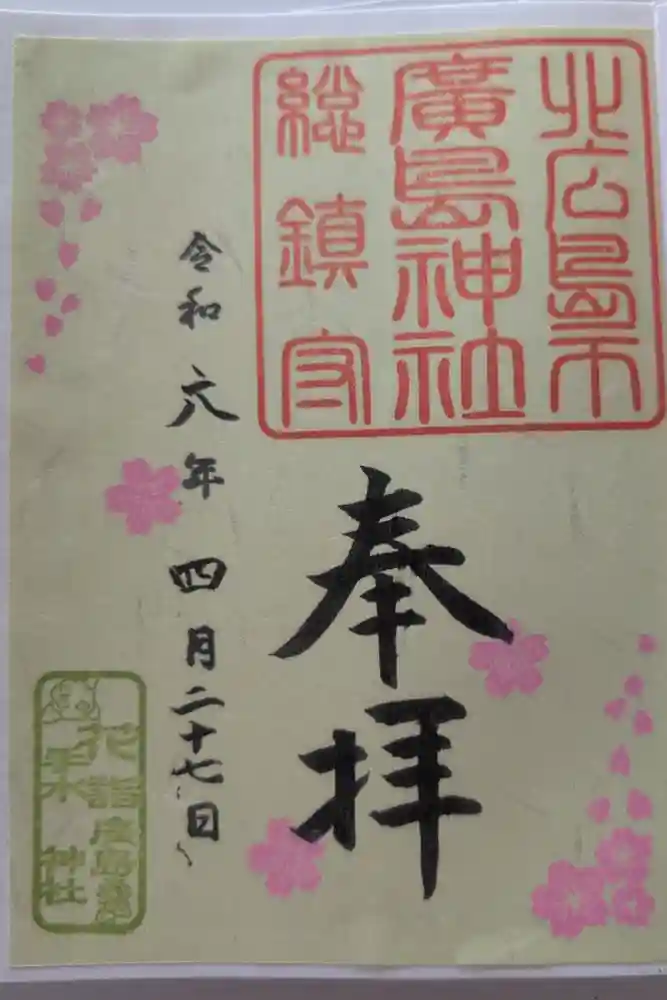 北広島市
廣島神社
総鎮守
奉拝
令和六年四月二十七日
花手水
神社